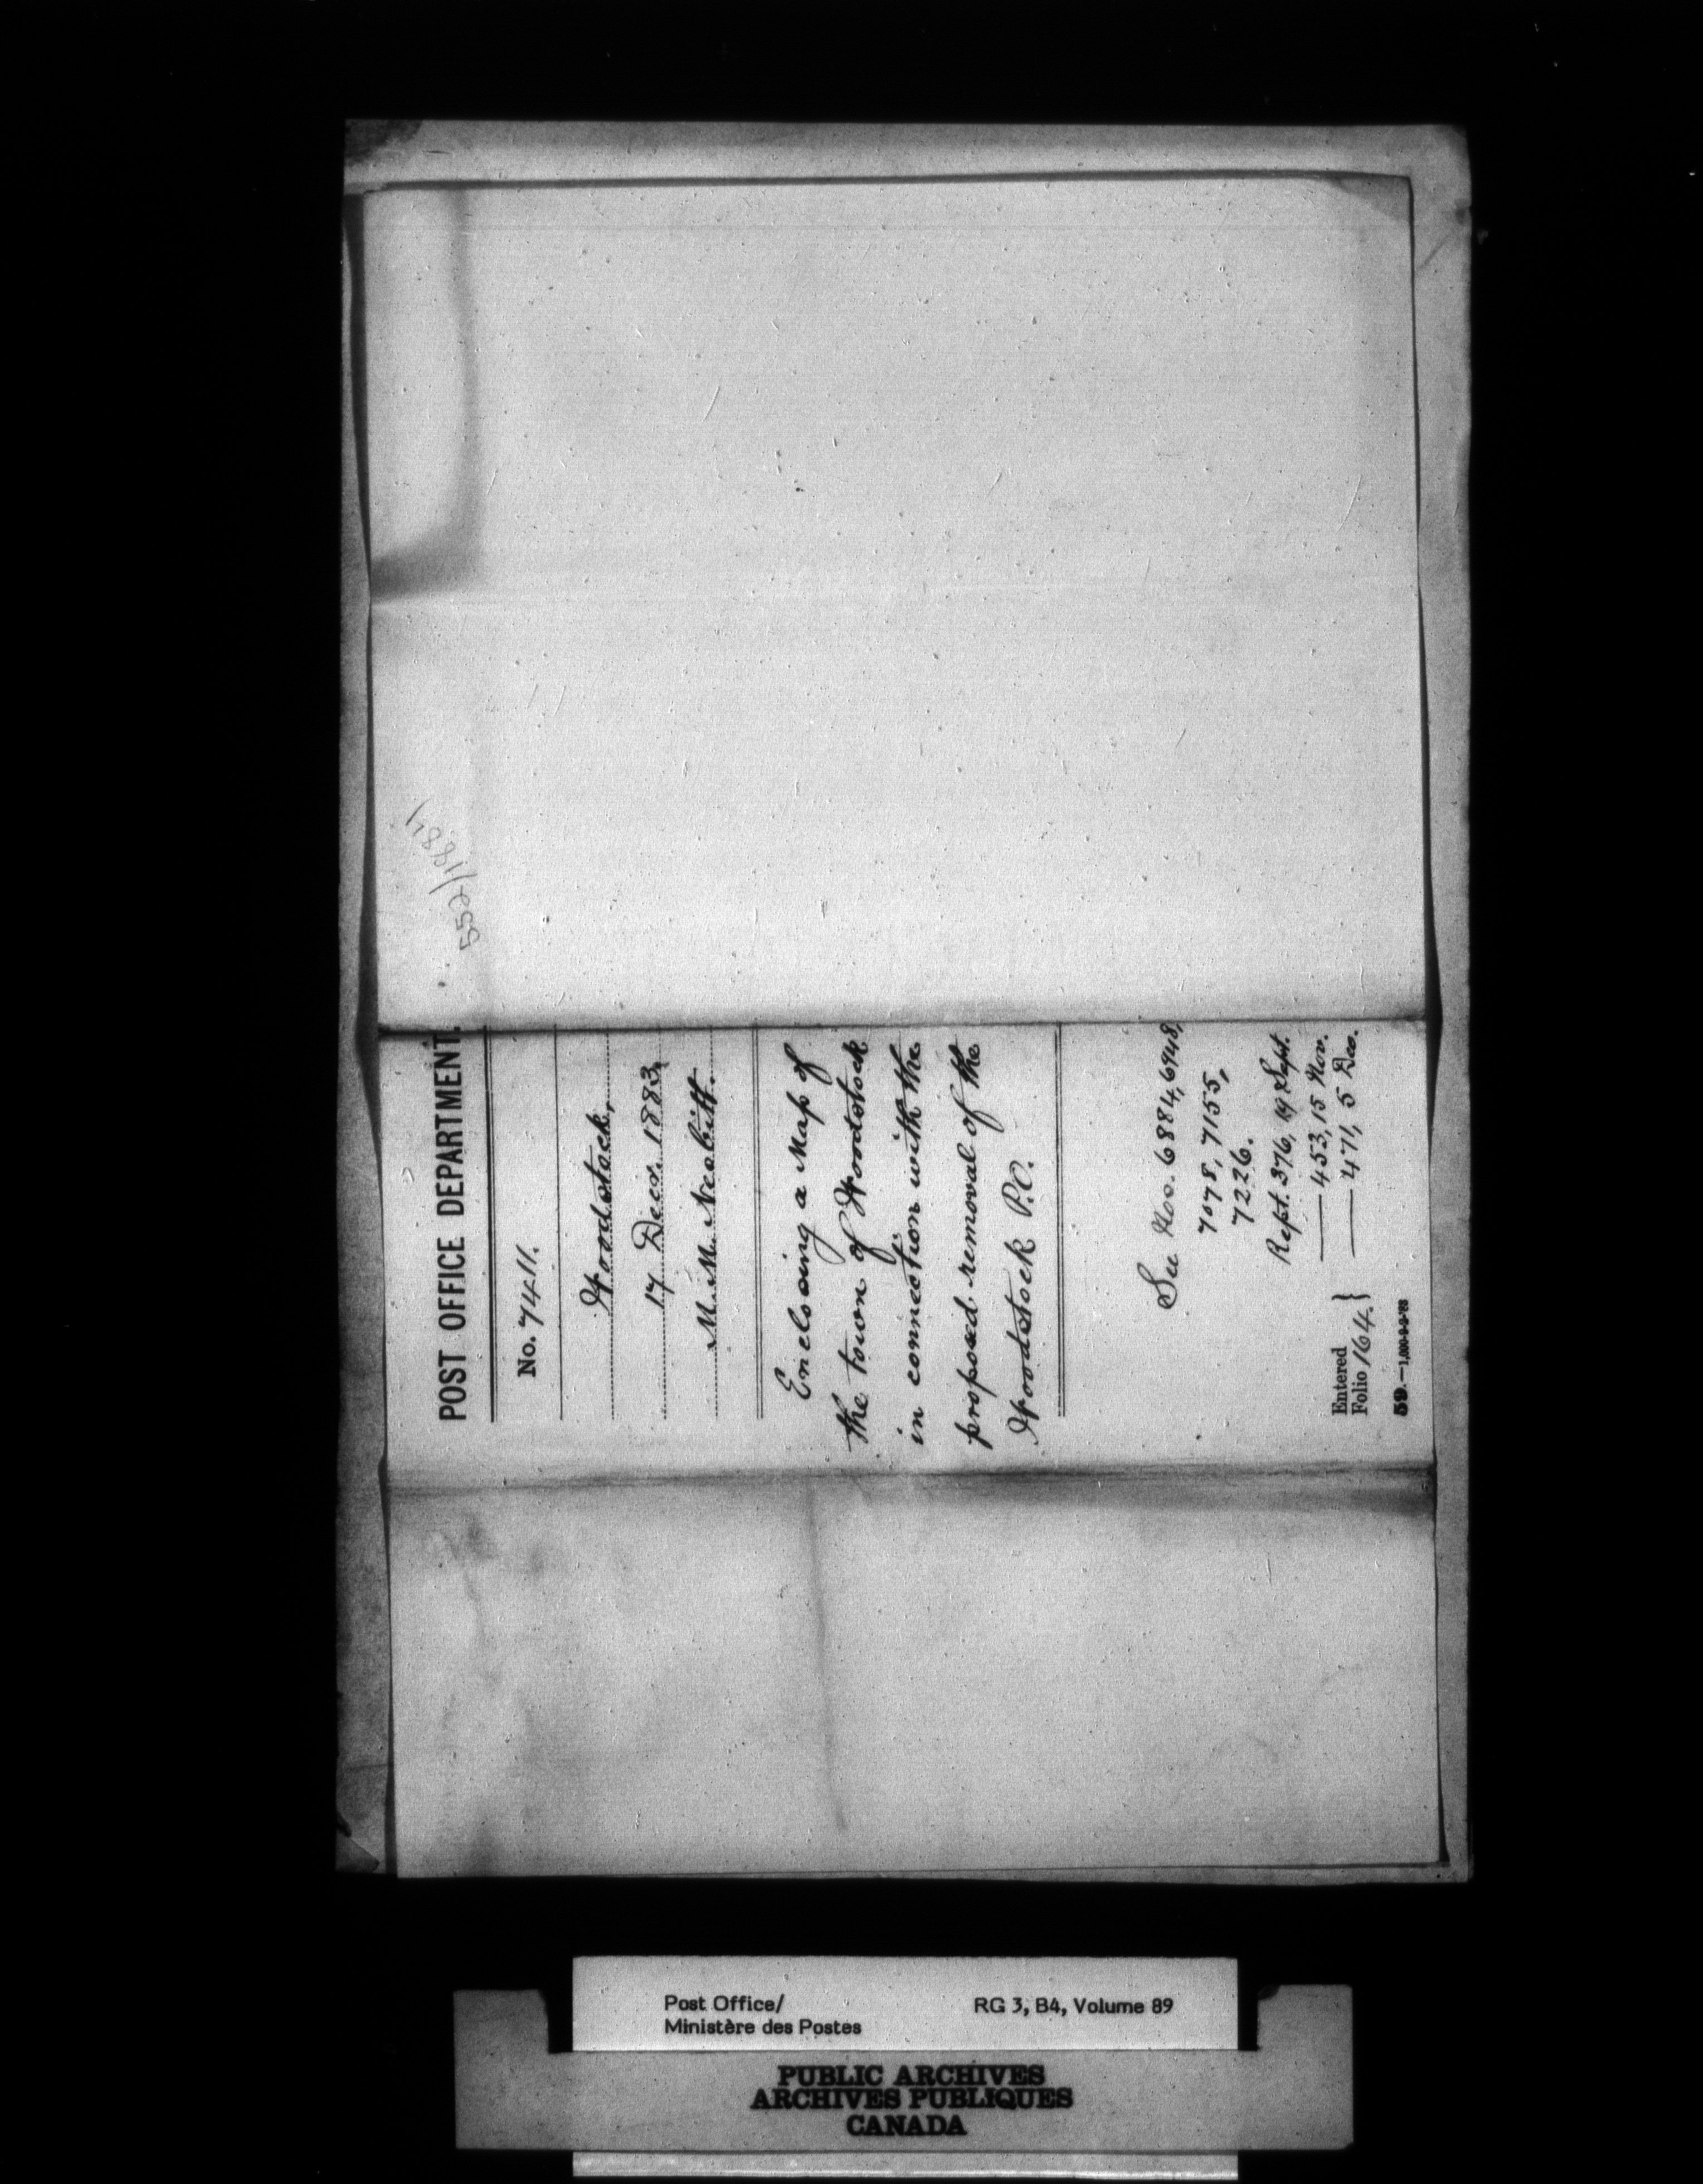 552/1884
POST OFFICE DEPARTMENT.
No. 7411.
Woodstock,
17 Decr. 1883,
M. M. Nesbitt.
Enclosing a Map of
the town of Woodstock
in connection with the
proposed removal of the
Woodstock P.O.
See Nos. 6884, 6948,
7078, 7155,
7226.
Rept. 376, 19 Sept.
— 453, 15 Nov.
— 471, 5 Dec.
Entered
Folio 164. }
59.—1,000-2-2-'83
Post Office/
Ministère des Postes
RG 3, B4, Volume 89
PUBLIC ARCHIVES
ARCHIVES PUBLIQUES
CANADA